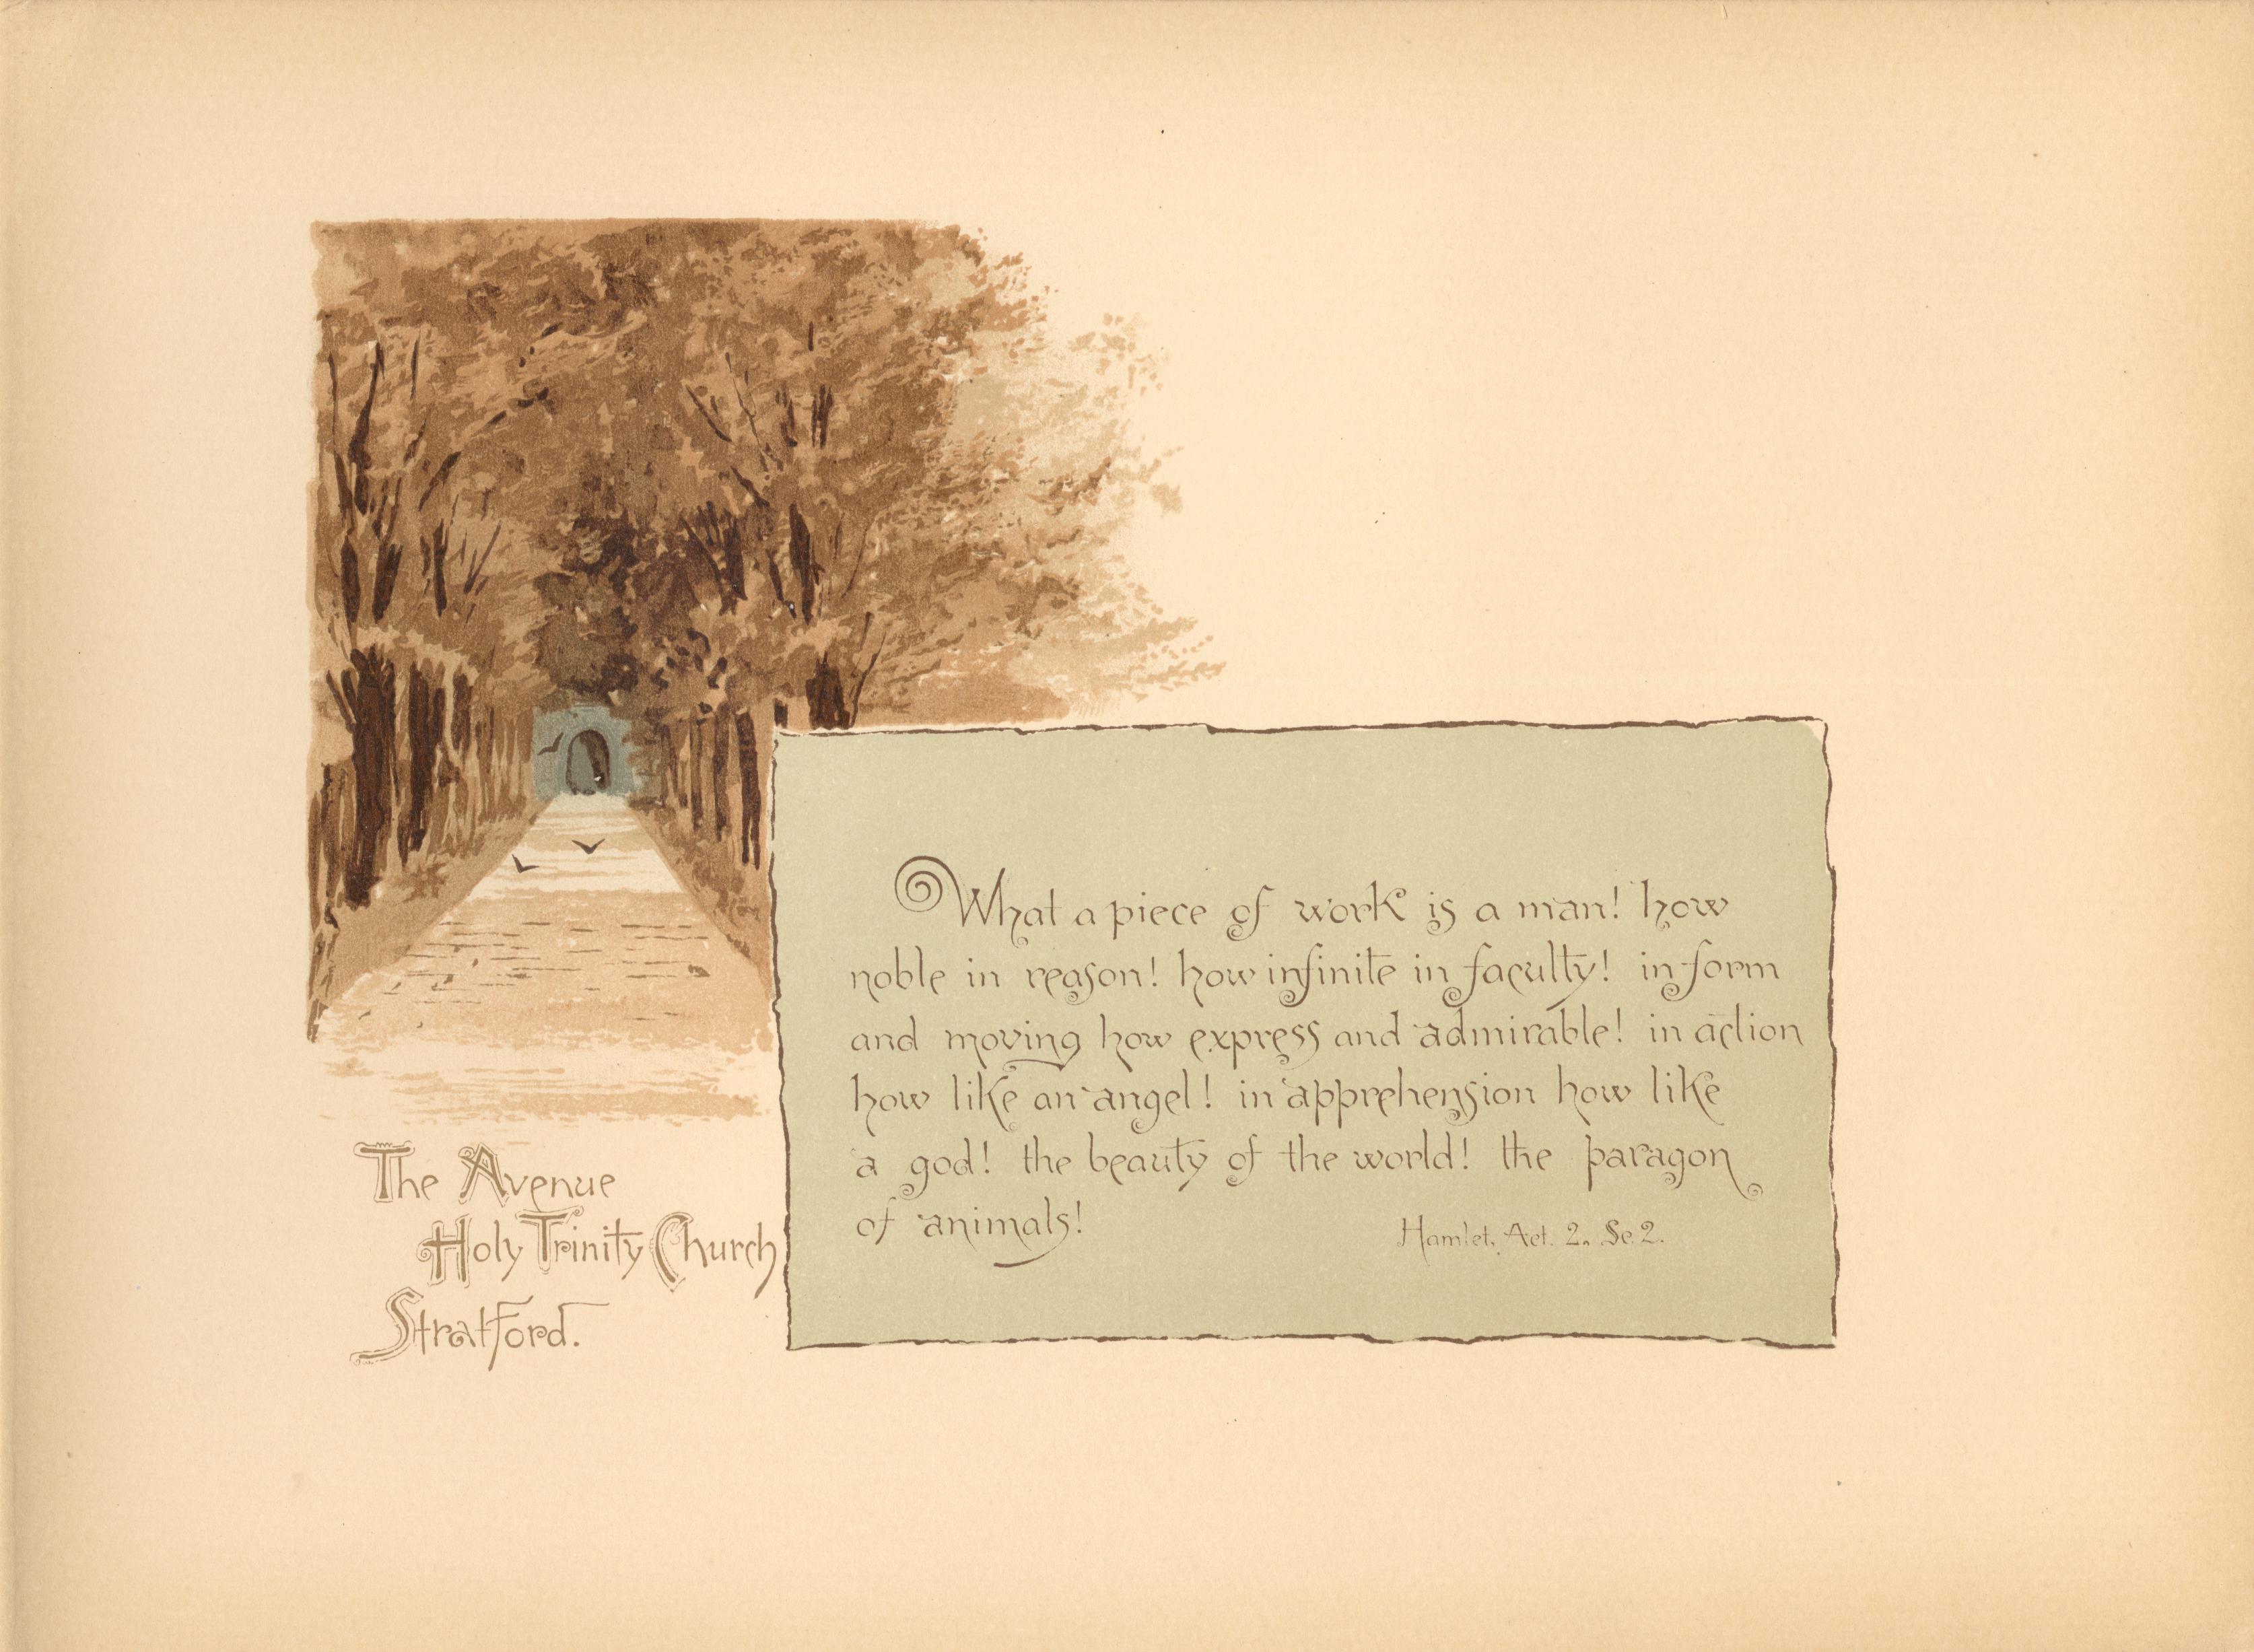 What a piece of work is a man! how
noble in reason! how infinite in faculty! in form
and moving how express and admirable! in action
how like an angel! in apprehension how like
a god! the beauty of the world! the paragon
of animals!
Hamlet, Act. 2. Sc. 2.
The Avenue
Holy Trinity Church
Stratford.